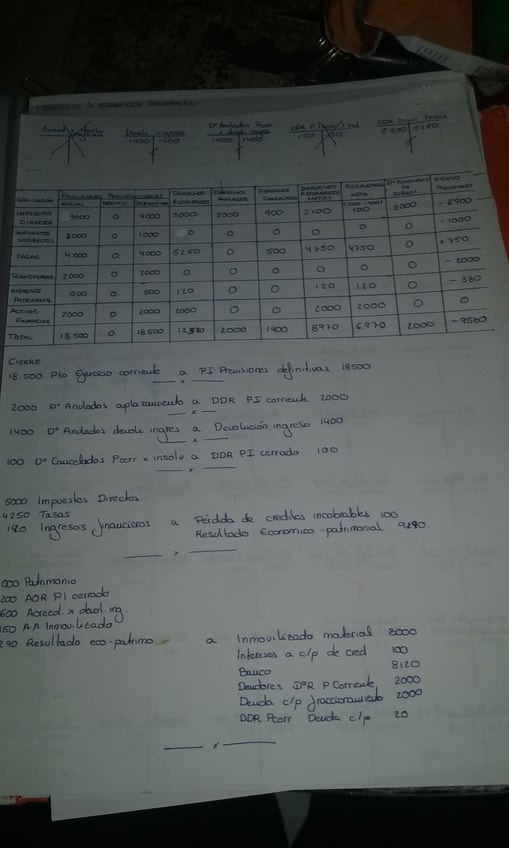 EJERCICIO 1 EJERCICIOS GENERALES
Devolu ingreso
1400 1400
Dº Anulados Pcorr
x devolu ingre
1400 1400
150
DDR Pcorr Tasas
5250 5250
APLICACIÓN PREVISIONES INICIAL MODIFIC DEFINITIV DERECHOS RECONOCIDO DERECHOS ANULADOS DERECHOS CANCELADO DERECHOS RECONOCIDOS NETOS RECAUDACIÓN NETA Dº PENDIENTES DE COBRO EXCESO PREVISIONES
IMPUESTOS DIRECTOS 9000 0 9000 5000 2000 900 2100 100 2000 -6900
IMPUESTOS INDIRECTOS 0 1000 0 0 0 0 0 0 -1000
TASAS 4.000 0 4000 5250 0 500 4750 4750 0 +750
TRANSFEREN 2000 0 2000 0 0 0 0 0 0 -2000
INGRESOS PATRIMONIAL 500 0 500 120 0 0 120 120 0 -380
ACTIVOS FINANCIER 2000 0 2000 2000 0 0 2000 2000 0 0
TOTAL 18.500 0 18500 2000 1400 8970 6970 2000
CIERRE
18.500 Pto Ejercicio corriente a P.I. Previsiones definitivas 18500
2000 Dº Anulados aplazamiento a DDR PI corriente 2000
1400 Dº Anulados devolu ingres a Devolución ingreso 1400
100 Dº Cancelados Pcorr x insolv a DDR PI cerrado 100
5000 Impuestos Directos
4250 Tasas
Ingresos financieros a Pérdida de creditos incobrables 100
Resultado Economico-patrimonial
000 Patrimonio
200 AOR PI cerrado
600 Acreed. x devol. ing.
150 A.A Inmovilizado
290 Resultado eco-patrimo a Inmovilizado material 3000
Intereses a c/p de cred 100
Banco 8120
Deudores DºR P Corriente 2000
Deuda c/p fraccionamiento 2000
DDR Pcorr Deuda c/p 20